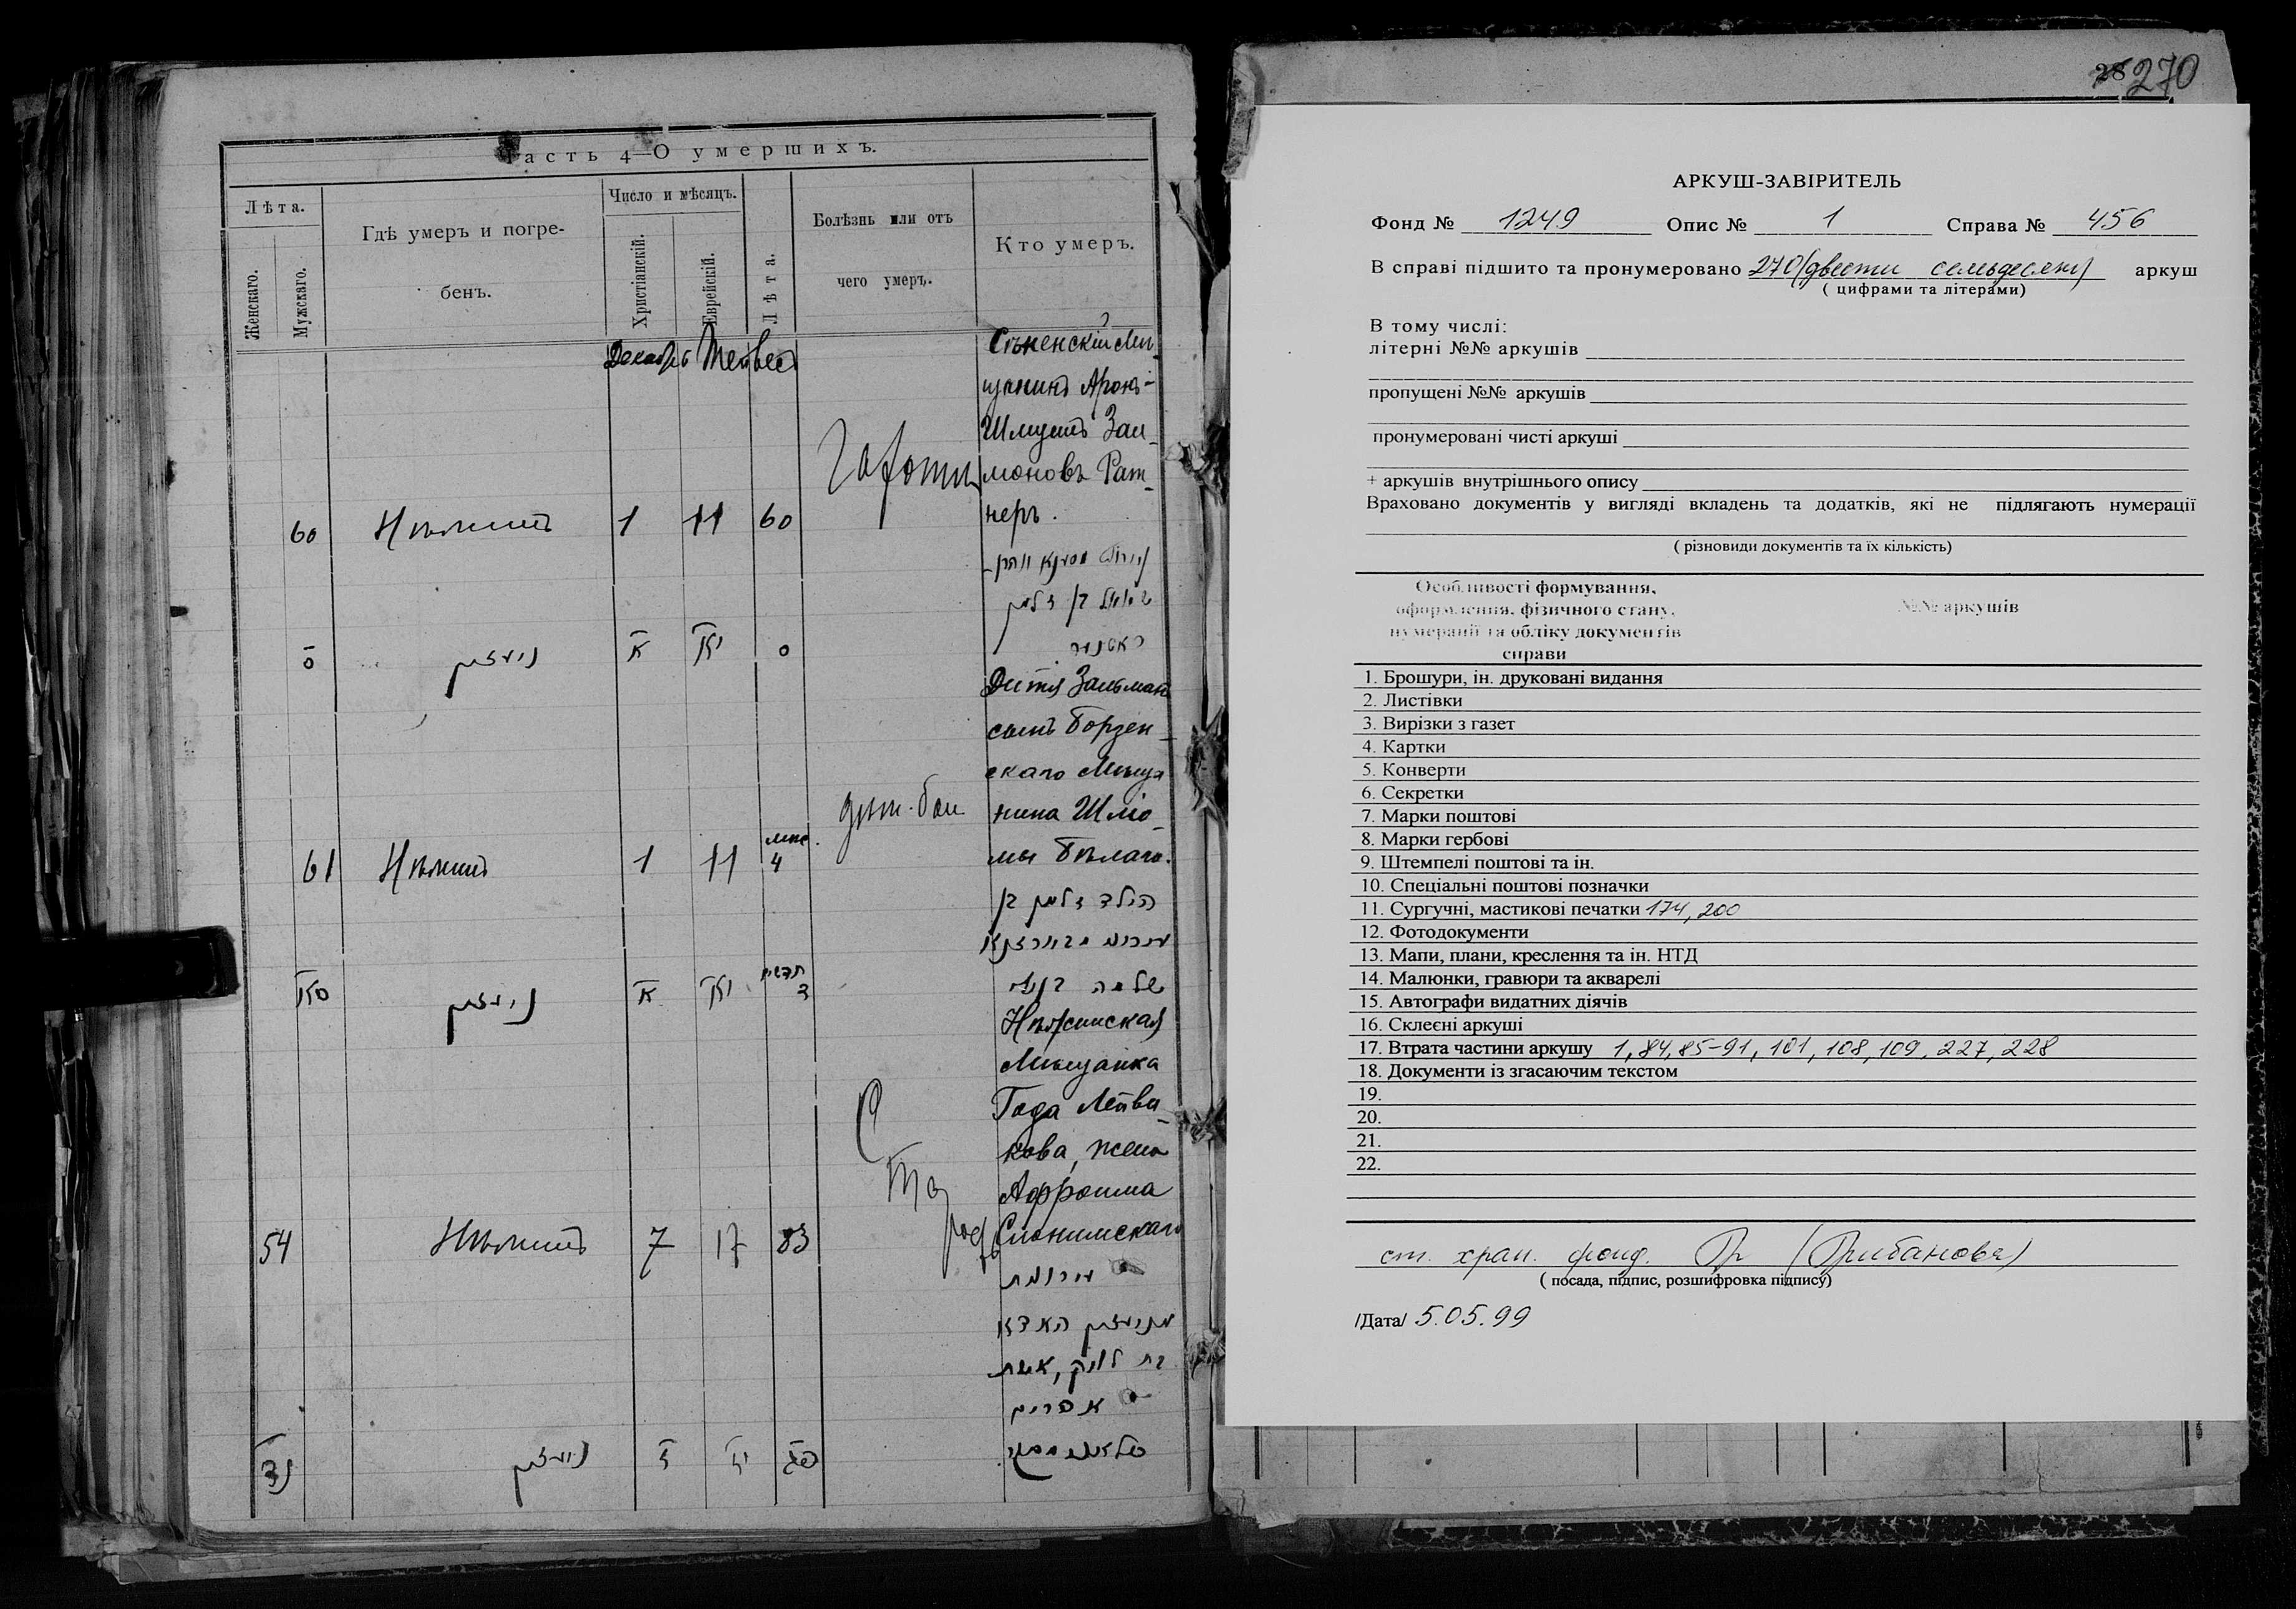 Часть 4—О умершихъ.
Лѣта.
Женскаго.
Мужскаго.
Гдѣ умеръ и погре-
бенъ.
Число и мѣсяцъ.
Христіанскій.
Еврейскій.
Лѣта.
Болѣзнь или отъ
чего умеръ.
Кто умеръ.
Декабрь
Сѣненскій Мѣ-
щанинъ Аронъ-
Шмуилъ Зал-
мановъ Рат-
неръ.
60 Нѣжинъ 1 11 60
שמואל בן זלמן
ראטנער
ניעזין
Дитя Зальманъ
сынъ Борзен-
скаго Мѣща
нина Шлио-
мы Бѣлаго.
61 Нѣжинъ 1 11 мѣс. 4 дѣт. бол
הילד זלמן בן
שלמה
ניעזין
Нѣжинская
Мѣщанка
Года
жена
Афроима
Слонимскаго
54 Нѣжинъ 7 17 83
עירונית
מניעזין האדא
אשת
אפרים
נד ניעזין ז יז פג
270
АРКУШ-ЗАВІРИТЕЛЬ
Фонд № 1249 Опис № 1 Справа № 456
В справі підшито та пронумеровано 270 (двести семьдесят) аркуш
( цифрами та літерами)
В тому числі:
літерні №№ аркушів
пропущені №№ аркушів
пронумеровані чисті аркуші
+ аркушів внутрішнього опису
Враховано документів у вигляді вкладень та додатків, які не підлягають нумерації
( різновиди документів та їх кількість)
Особливості формування,
оформлення, фізичного стану,
нумерації та обліку документів
справи
№№ аркушів
1. Брошури, ін. друковані видання
2. Листівки
3. Вирізки з газет
4. Картки
5. Конверти
6. Секретки
7. Марки поштові
8. Марки гербові
9. Штемпелі поштові та ін.
10. Спеціальні поштові позначки
11. Сургучні, мастикові печатки 174, 200
12. Фотодокументи
13. Мапи, плани, креслення та ін. НТД
14. Малюнки, гравюри та акварелі
15. Автографи видатних діячів
16. Склеєні аркуші
17. Втрата частини аркушу 1, 84, 85-91, 101, 108, 109, 227, 228
18. Документи із згасаючим текстом
19.
20.
21.
22.
ст. хран. фонд. (Грибанова)
( посада, підпис, розшифровка підпису)
/Дата/ 5.05.99